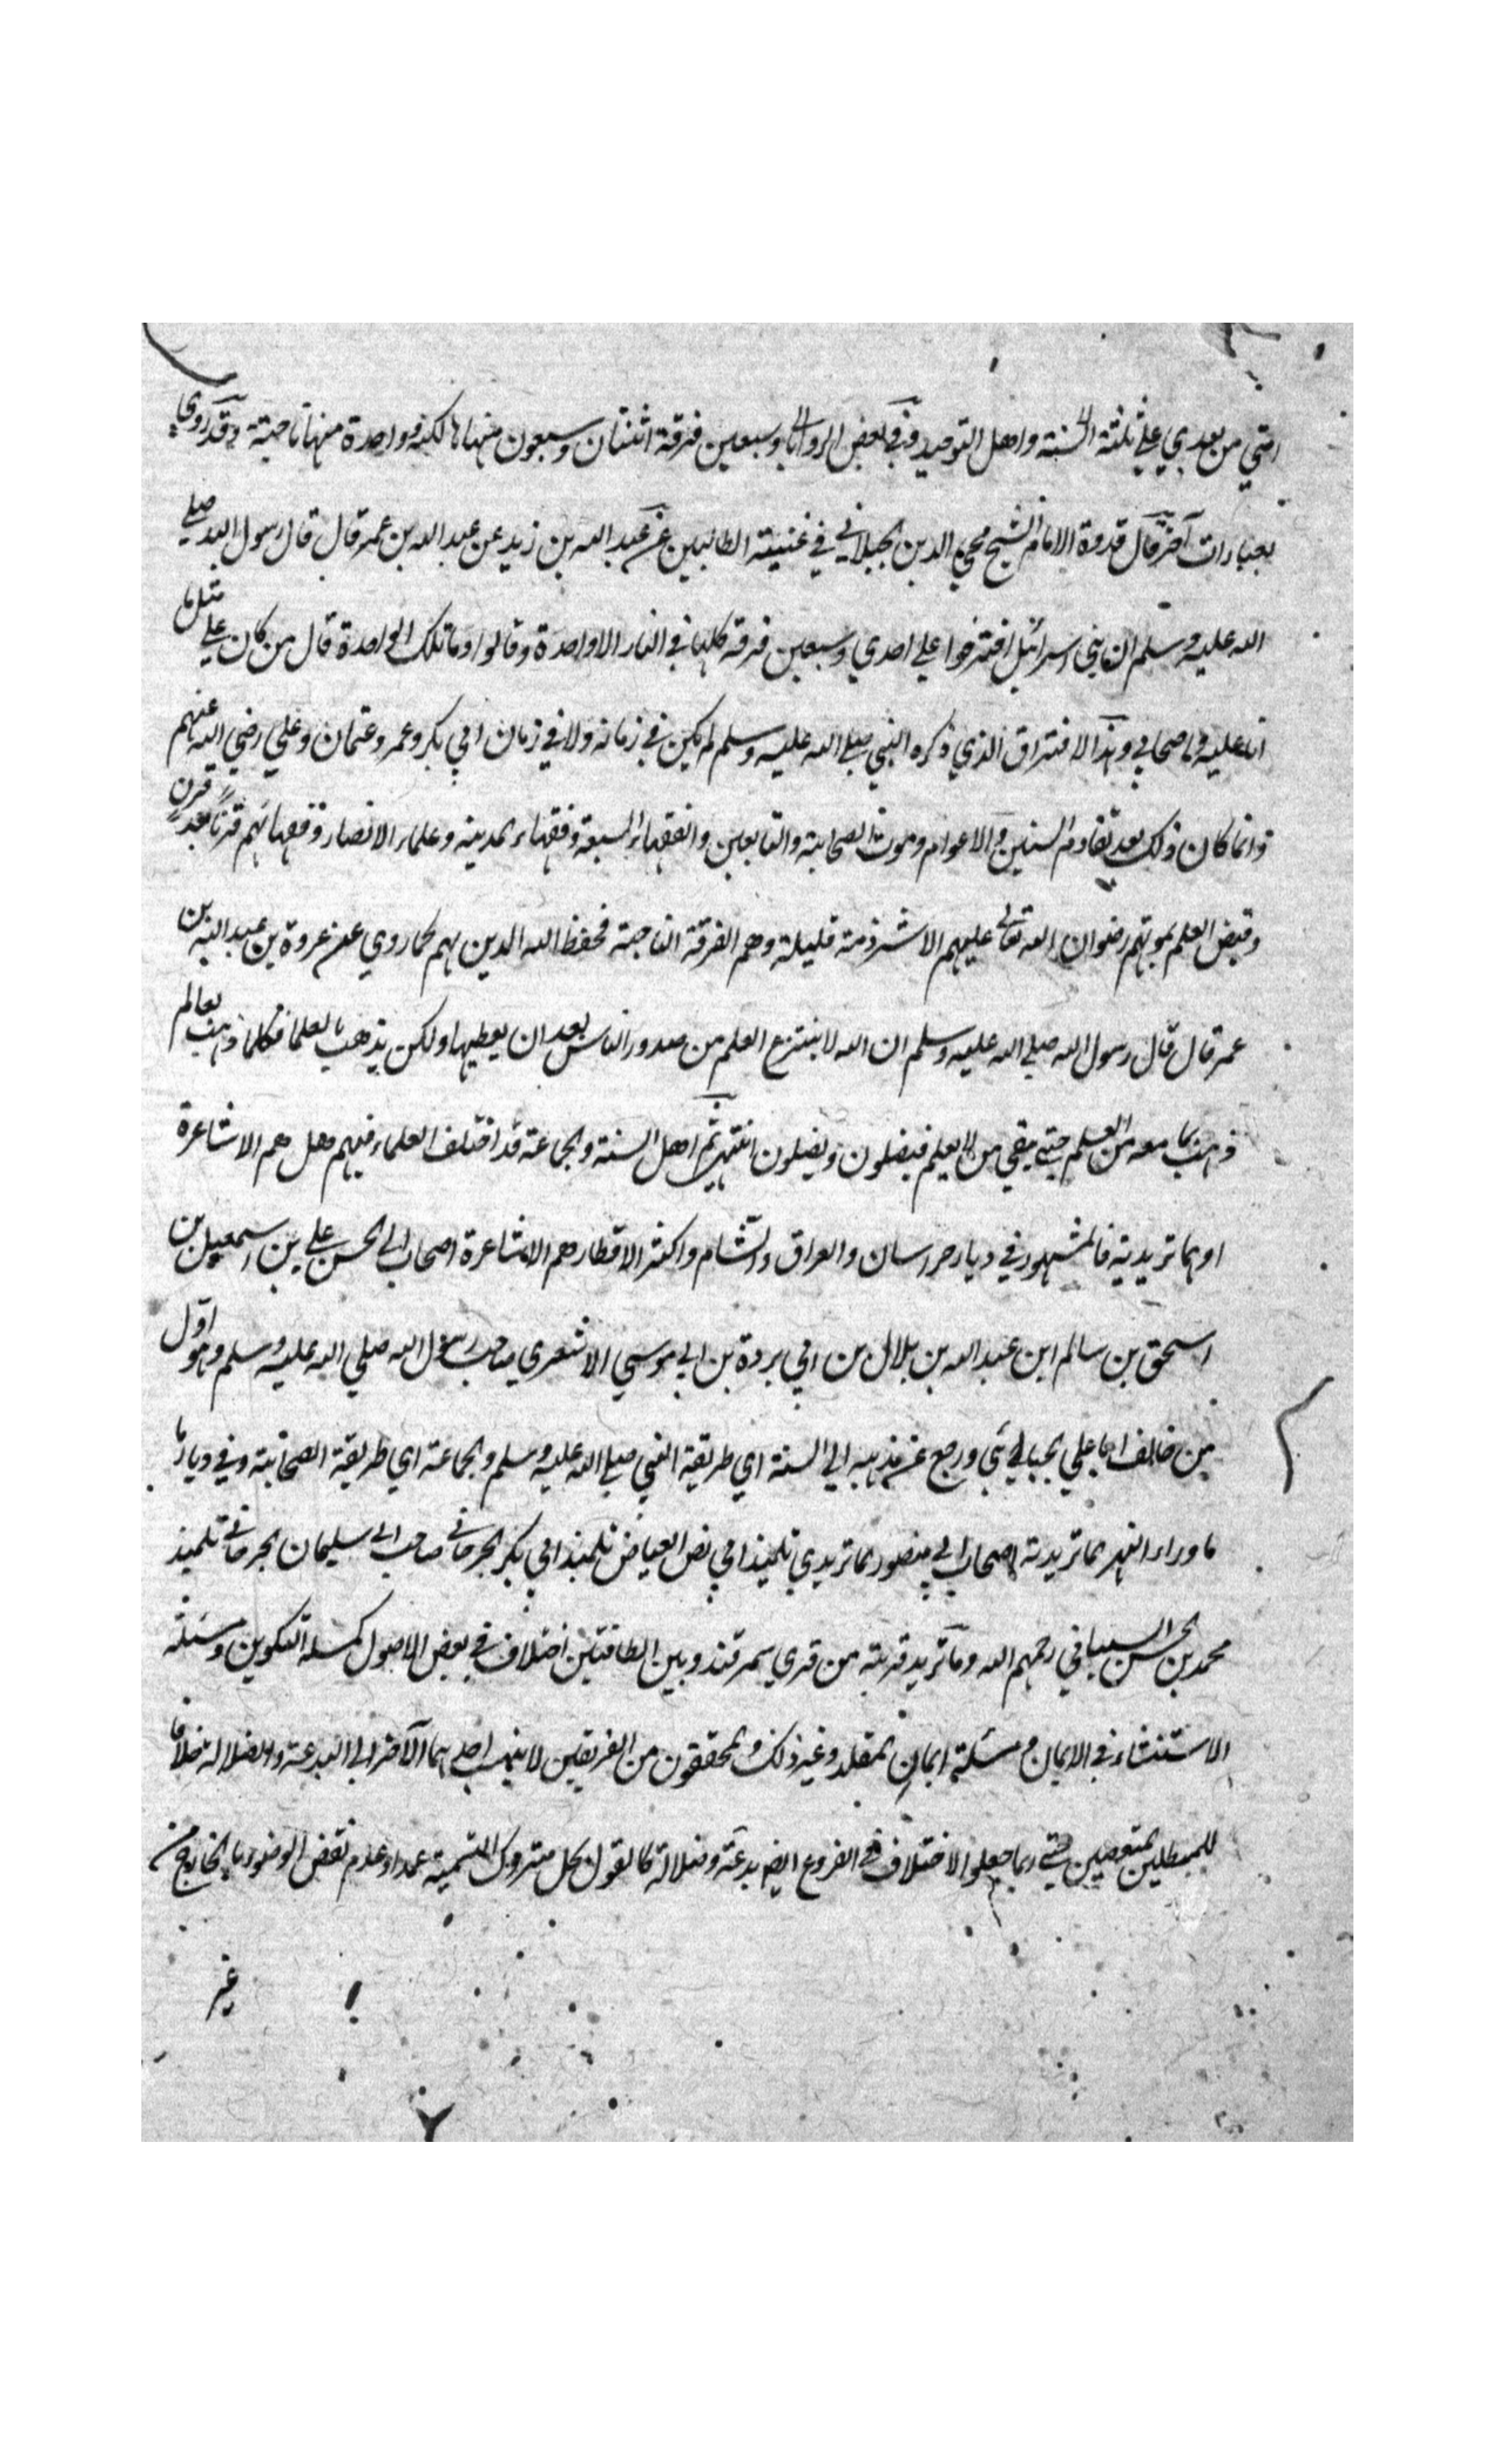 امتي من بعدي علي ثلثة السنة واهل التوحيد وفي بعض الروايات وسبعين فرقة اثنتان وسبعون منها هالكة وواحدة منها ناجية وقد روي
بعبارات آخر قال قدوة الامام الشيخ محي الدين الجيلاني في غنية الطالبين عن عبد الله بن زيد عن عبد الله بن عمر قال قال رسول الله صلي
الله عليه وسلم ان بني اسرائيل افترقوا علي احدي وسبعين فرقة كلها في النار الا واحدة وقالوا وما تلك الواحدة قال من كان علي مثل ما
انا عليه واصحابي وهذا الافتراق الذي ذكره النبي صلي الله عليه وسلم لم يكن في زمانه ولا في زمان ابي بكر وعمر وعثمان وعلي رضي الله عنهم
وانما كان ذلك بعد تقادم السنين والاعوام وموت الصحابة والتابعين والفقهاء السبعة وفقهاء المدينة وعلماء الانصار وفقهائهم قرنا بعد قرن
وقبض العلم بموتهم رضوان الله تعالي عليهم الا شرذمة قليلة وهم الفرقة الناجية فحفظ الله الدين بهم كما روي عن عروة بن عبد الله بن
عمر قال قال رسول الله صلي الله عليه وسلم ان الله لا ينتزع العلم من صدور الناس بعد ان يعطيها ولكن يذهب بالعلما فكلما ذهب بعالم
ذهب بما معه من العلم حتي يبقي من لا يعلم فيضلون ويضلون انتهي ثم اهل السنة والجماعة قد اختلف العلماء فيهم هل هم الاشاعرة
او الماتريدية فالمشهور في ديار خراسان والعراق والشام واكثر الاقطار هم الاشاعرة اصحاب ابي الحسن علي بن اسمعيل بن
اسحق بن سالم ابن عبد الله بن بلال بن ابي بردة بن ابي موسي الاشعري صاحب رسول الله صلي الله عليه وسلم وهو اول
من خالف ابا علي الجبائي ورجع عن مذهبه الي السنة اي طريقة النبي صلي الله عليه وسلم والجماعة اي طريقة الصحابة وفي ديار
ما وراء النهر الماتريدية اصحاب ابي منصور الماتريدي تلميذ ابي نصر العياض تلميذ ابي بكر الجرجاني صاحب ابي سليمان الجرجاني تلميذ
محمد بن الحسن الشيباني رحمهم الله وماتريد قرية من قري سمرقند وبين الطائفتين اختلاف في بعض الاصول كمسئلة التكوين ومسئلة
الاستثناء في الايمان ومسئلة ايمان المقلد وغير ذلك والمحققون من الفريقين لا ينسب احدهما الآخر الي البدعة والضلالة خلافا
للمبطلين المتعصبين حتي ربما جعلوا الاختلاف في الفروع ايضا بدعة وضلالة كالقول بحل متروك التسمية عمدا وعدم نقض الوضوء بالخارج من
غير